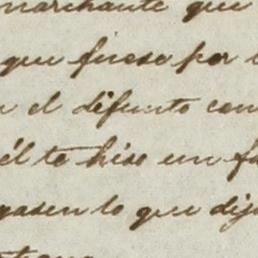 marchante que
que fuese por l
el difunto con
él te hise un fa
gasen lo que dij